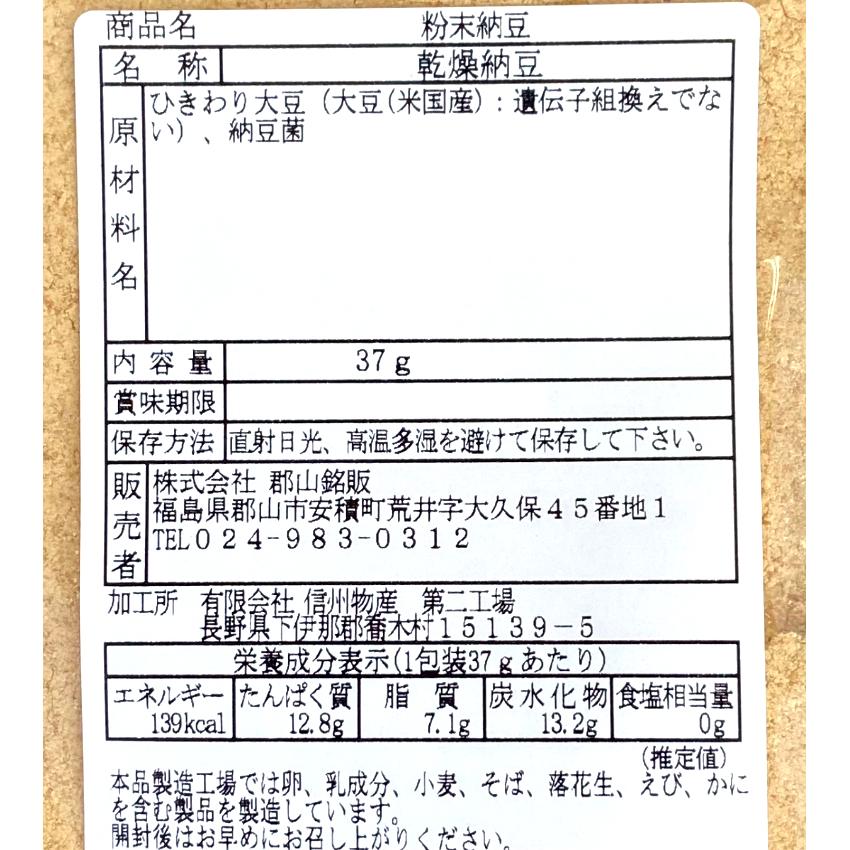 商品名 粉末納豆
名称 乾燥納豆
原材料名 ひきわり大豆（大豆(米国産）:遺伝子組換えでな
い）、納豆菌
内容量 37g
賞味期限
保存方法 直射日光、高温多湿を避けて保存して下さい。
販売者 株式会社 郡山銘販
福島県郡山市安積町荒井字大久保４５番地１
TEL０２４-９８３-０３１２
加工所 有限会社 信州物産 第二工場
長野県下伊那郡喬木村１５１３９－５
栄養成分表示(1包装37gあたり)
エネルギー たんぱく質 脂質 炭水化物 食塩相当量
139kcal 12.8g 7.1g 13.2g 0g
(推定値)
本品製造工場では卵、乳成分、小麦、そば、落花生、えび、かに
を含む製品を製造しています。
開封後はお早めにお召し上がりください。